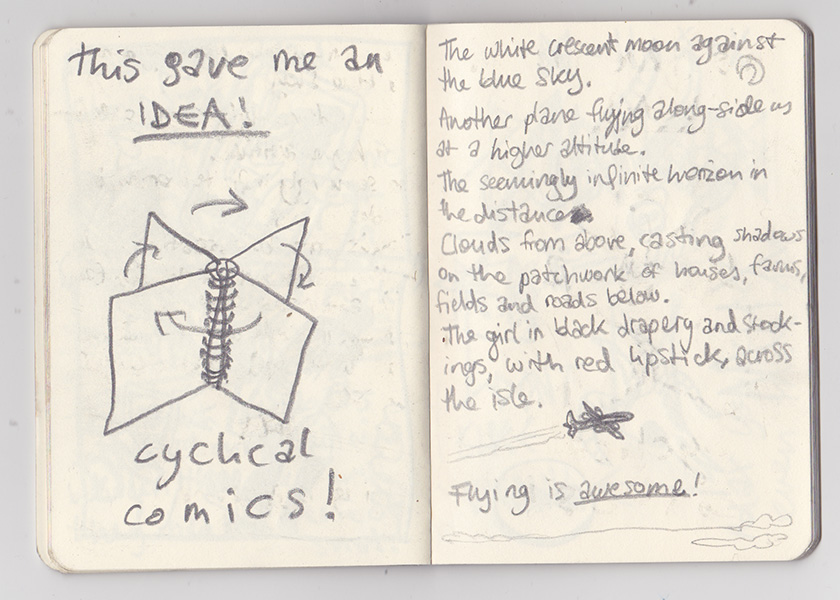 this gave me an
IDEA!
cyclical
comics!
The white crescent moon against
the blue sky.
Another plane flying along-side us
at a higher altitude.
The seemingly infinite horizon in
the distance
Clouds from above, casting shadows
on the patchwork of houses, farms,
fields and roads below.
The girl in black drapery and stock-
ings, with red lipstick, across
the isle.
Flying is awesome!